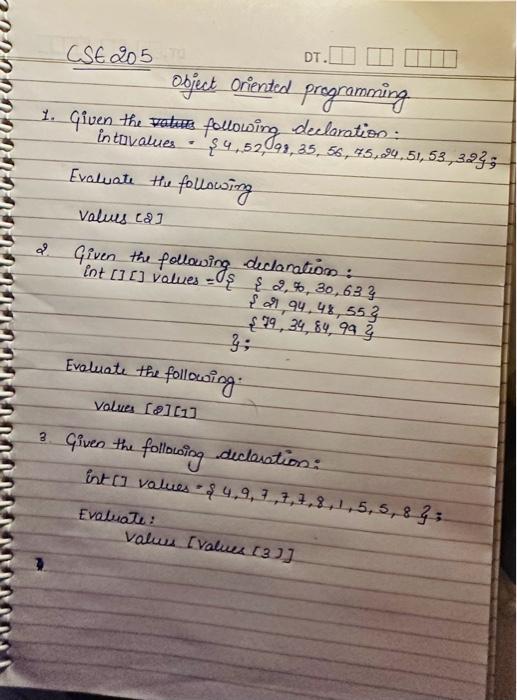 CSE 205
DT.
Object Oriented programming
1. Given the following declaration:
int values = {4,52,98,35,56,75,24,51,53,32};
Evaluate the following
values [2]
2. Given the following declaration:
int [][] values = { { 2, 30, 63 }
{ 21, 94, 48, 55 }
{ 79, 34, 84, 99 }
};
Evaluate the following:
values [2][1]
3 Given the following declaration:
int [] values = { 4,9,7,7,7,8,1,5,5,8 };
Evaluate:
values [values [3]]